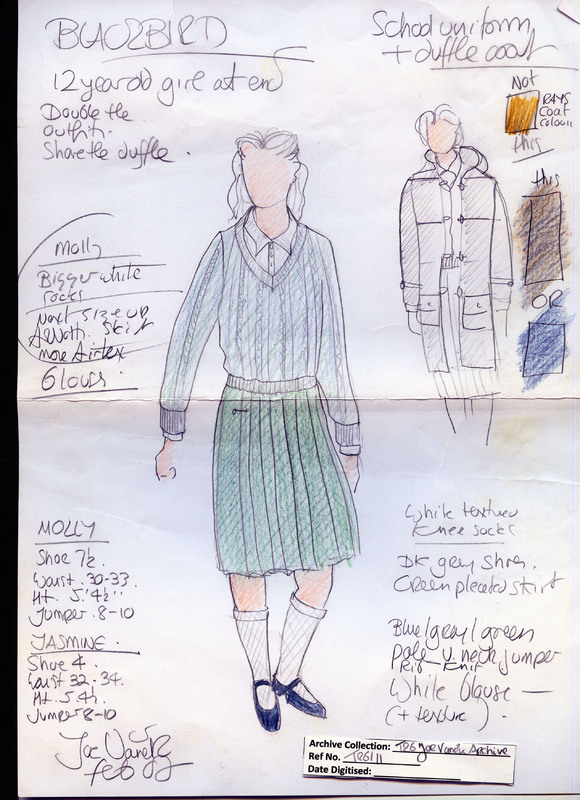 BLACKBIRD
School uniform
+ duffle coat
12 year old girl at end
Double the
outfit.
Share the duffle.
Not
RAYS
Coat
Colour
this
this
OR
Molly
Bigger white
socks
Next size up
Skirt
more Airtex
Gloves.
White textured
Knee socks
DK grey shoes.
Green pleated skirt
Blue/grey/green
pale V neck jumper
Rib Knit
White blouse —
(+ texture).
MOLLY
Shoe 7½.
Waist. 30-33.
Ht. 5.'4½''
Jumper. 8-10
JASMINE.
Shoe 4.
Waist 32-34.
Ht. 5.4½.
Jumper 8-10
Archive Collection: TR6 Joe Vanek Archive
Ref No. TR6/11
Date Digitised: